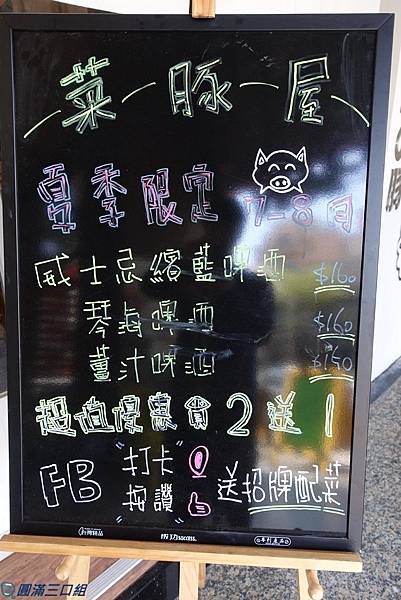 菜豚屋
夏季限定 7-8月
威士忌繽藍啤酒 $160
琴海啤酒 $160
薑汁啤酒 $150
超值優惠買2送1
FB "打卡" 送招牌配菜
"按讚"
圓滿三口組